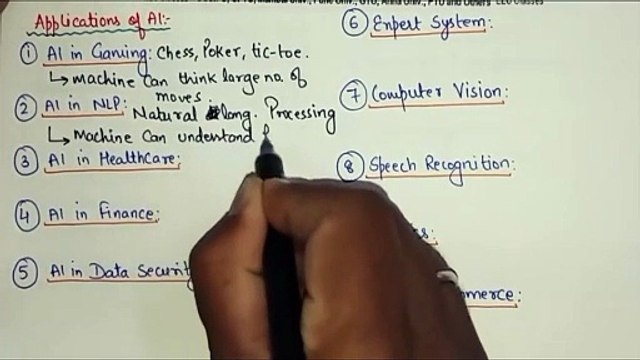 Applications of AI:-
① AI in Gaming: Chess, Poker, tic-toe.
↳ machine can think large no. of
moves.
② AI in NLP: Natural long. Processing
↳ Machine can understand
③ AI in Healthcare:
④ AI in Finance:
⑤ AI in Data Security
⑥ Expert System:
⑦ Computer Vision:
⑧ Speech Recognition: